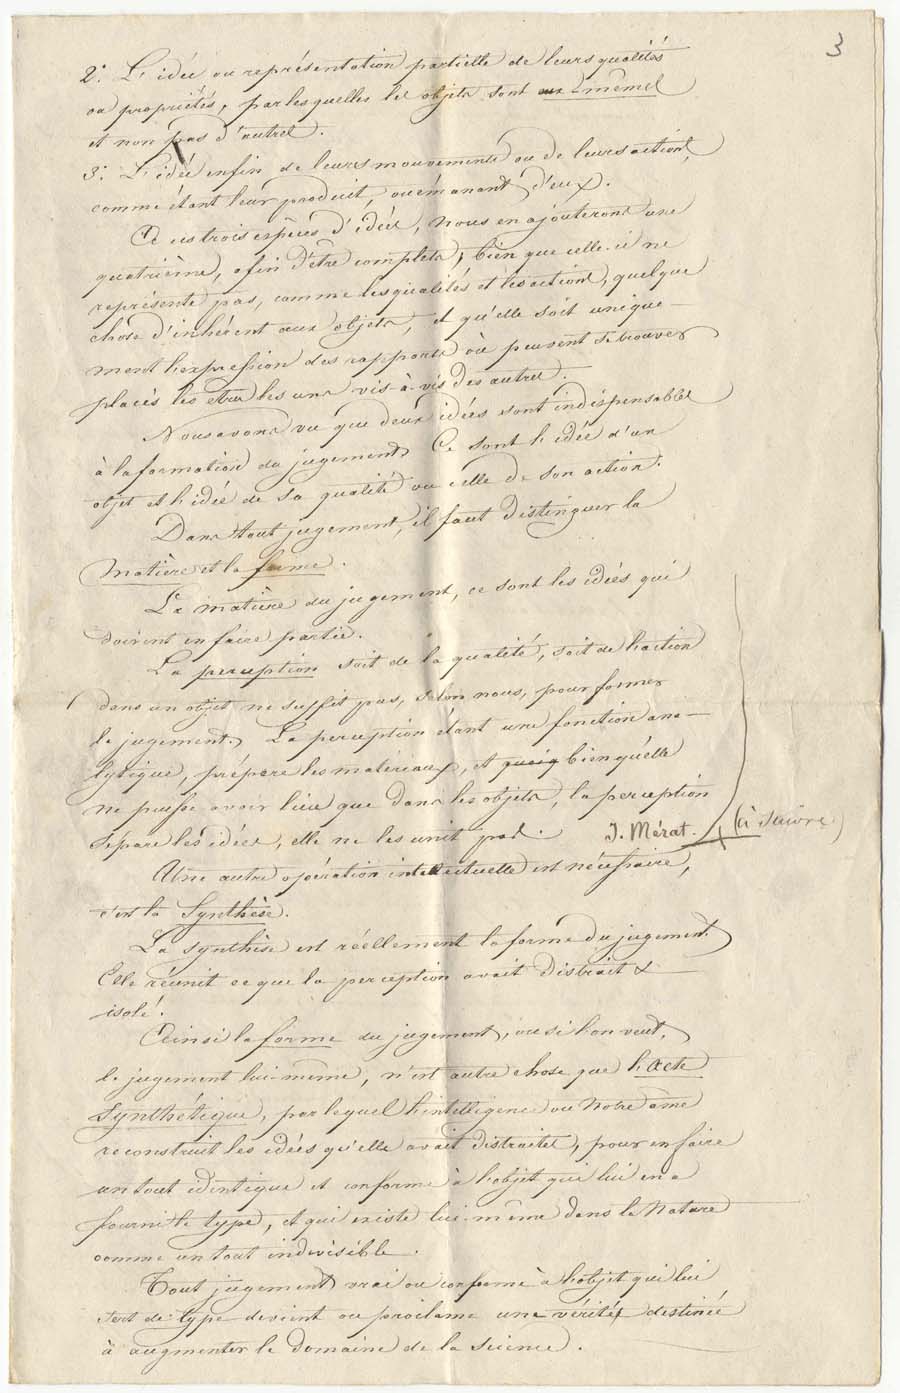 3
2.° L'idée ou représentation partielle de leurs qualités
ou propriétés, par lesquelles les objets sont eux-mêmes
et non pas d'autres.
3.° L'idée enfin de leurs mouvements ou de leurs actions,
comme étant leur produit, ou émanant d'eux.
A ces trois espèces d'idées, nous en ajouterons une
quatrième, afin d'être complets; bien que celle-ci ne
représente pas, comme les qualités et les actions, quelque
chose d'inhérent aux objets, et qu'elle soit unique-
ment l'expression des rapports où peuvent se trouver
placés les êtres les uns vis-à-vis des autres.
Nous avons vu que deux idées sont indispensables
à la formation du jugement. Ce sont l'idée d'un
objet et l'idée de sa qualité ou celle de son action.
Dans tout jugement, il faut distinguer la
matière et la forme.
La matière du jugement, ce sont les idées qui
doivent en faire partie.
La perception soit de la qualité, soit de l'action
dans un objet ne suffit pas, selon nous, pour former
le jugement. La perception étant une fonction ana-
lytique, prépare les matériaux, et quoiq bien qu'elle
ne puisse avoir lieu que dans les objets, la perception
sépare les idées, elle ne les unit pas.
J. Mérat. (à suivre)
Une autre opération intellectuelle est nécessaire,
c'est la Synthèse.
La synthèse est réellement la forme du jugement.
Elle réunit ce que la perception avait distrait &
isolé.
Ainsi la forme du jugement, ou si l'on veut,
le jugement lui-même, n'est autre chose que l'acte
Synthétique, par lequel l'intelligence ou notre âme
reconstruit les idées qu'elle avait distraites, pour en faire
un tout identique et conforme à l'objet qui lui en a
fourni le type, et qui existe lui-même dans la Nature
comme un tout indivisible.
Tout jugement vrai ou conforme à l'objet qui lui
sert de type devient ou proclame une vérité, destinée
à augmenter le domaine de la science.